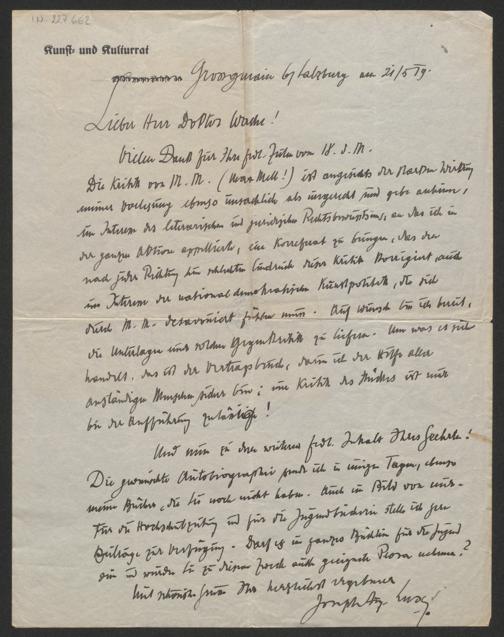 I.N. 227662
Kunst- und Kulturrat
Grossgmain b/ Salzburg am 21/5 19.
Lieber Herr Doktor Wache!
Vielen Dank für Ihre frdl. Zeilen vom 18. d. M.
Die Kritik von M. M. (Max Mell!) ist angesichts der starken Wirkung
meiner Vorlesung ebenso unsachlich als ungerecht und gebe anheim,
im Interesse des literarischen und juridischen Rechtsbewußtseins, an das ich in
der ganzen Aktion appelliert, eine Korrektur zu bringen, das den
nach jeder Richtung hin schlechten Eindruck dieser Kritik korrigiert, auch
im Interesse der nationaldemokratischen Kunstpolitik, die sich
durch M. M. desavouiert fühlen muss. Auf Wunsch bin ich bereit,
die Unterlagen einer solchen Gegenkritik zu liefern. Um was es sich
handelt, das ist der Vertragsbruch, darin ich der Hilfe aller
anständigen Menschen sicher bin; eine Kritik des Stückes ist erst
bei der Aufführung zulässig!
Und nun zu dem weiteren frdl. Inhalt Ihres Geehrten!
Die gewünschte Autobiographie sende ich in einigen Tagen, ebenso
meine Bücher, die Sie noch nicht haben. Auch ein Bild von mir.
Für die Hochschulzeitung und für die Jugendbücherei stelle ich gern
Beiträge zur Verfügung. Darf es ein ganzes Büchlein für die Jugend
sein und würden Sie zu diesem Zweck auch geeignete Prosa nehmen?
Mit schönstem Gruss Ihr herzlichst ergebener
Joseph Aug. Lux